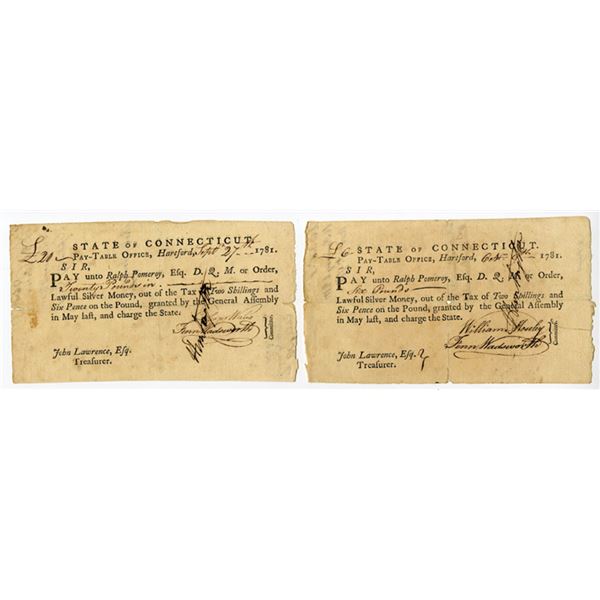 STATE OF CONNECTICUT,
£20
PAY-TABLE OFFICE, Hartford, Sept 27th 1781.
SIR,
PAY unto Ralph Pomeroy, Esq. D. Q. M. or Order,
Twenty Pounds in
Lawful Silver Money, out of the Tax of Two Shillings and
Six Pence on the Pound, granted by the General Assembly
in May last, and charge the State.
Fenn Wadsworth
Committee.
John Lawrence, Esq.
Treasurer.
£6
STATE OF CONNECTICUT.
PAY-TABLE OFFICE, Hartford, 1781.
SIR,
PAY unto Ralph Pomeroy, Esq. D. Q. M. or Order,
Six Pounds
Lawful Silver Money, out of the Tax of Two Shillings and
Six Pence on the Pound, granted by the General Assembly
in May last, and charge the State.
William Mosely
Fenn Wadsworth
Committee.
John Lawrence, Esq.
Treasurer.